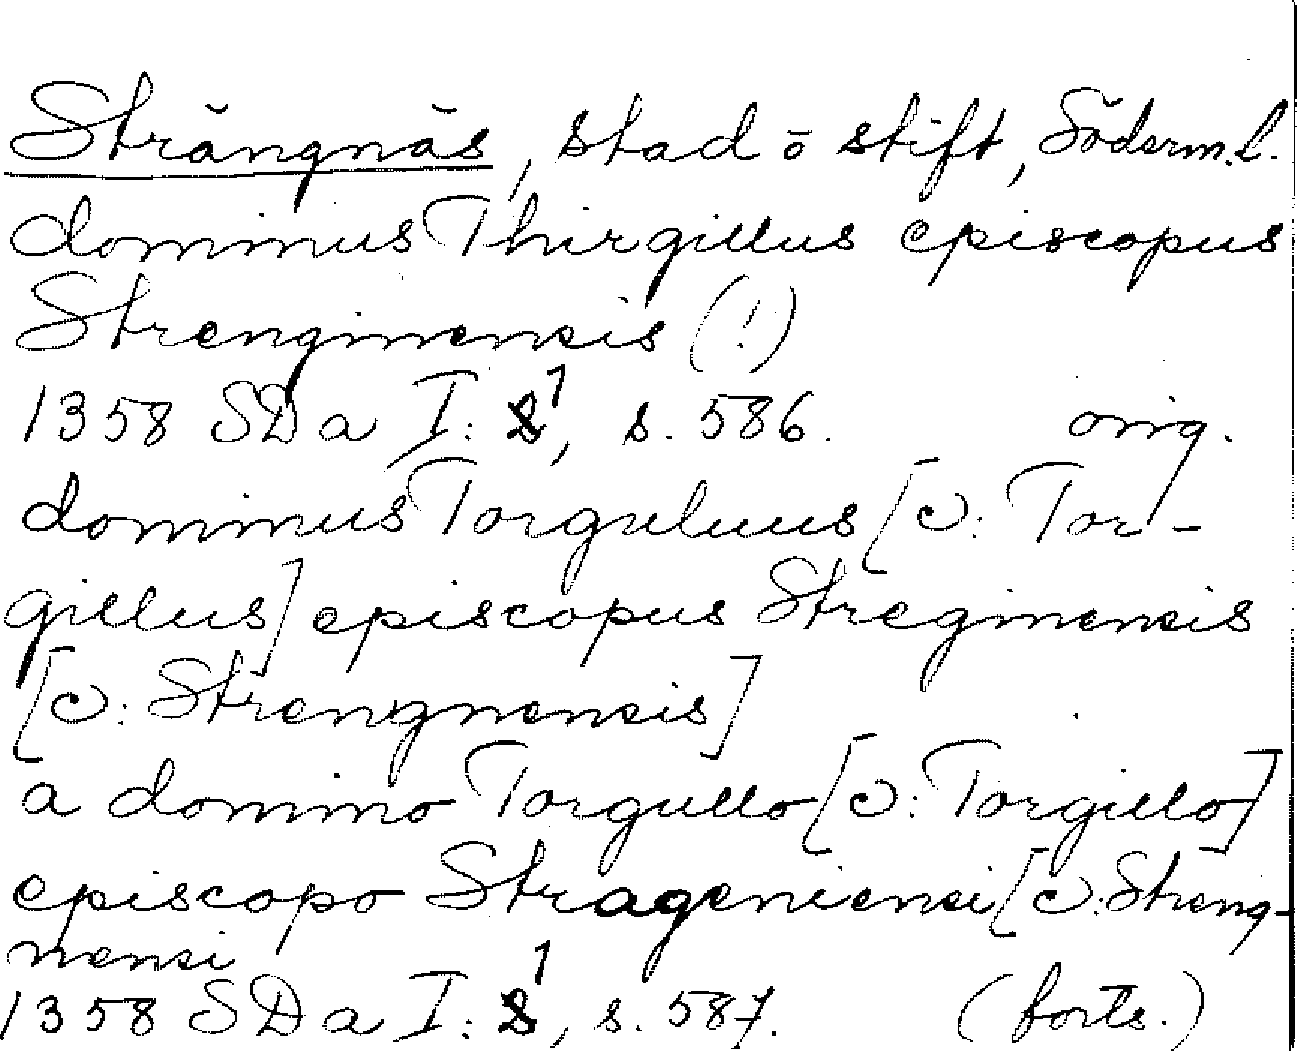 Strängnäs, stad ō stift, Söderm.l.
dominus Thirgillus episcopus
Strenginensis (!)
1358 SDa I: 1, s. 586. orig.
dominus Torguluus [ɔ: Tor-
gillus] episcopus Streginensis
[ɔ: Strengnensis]
a domino Torgullo [ɔ: Torgillo]
episcopo Strageniensi [ɔ: Streng-
nensi
1358 SDa I: 1, s. 587. (forts.)